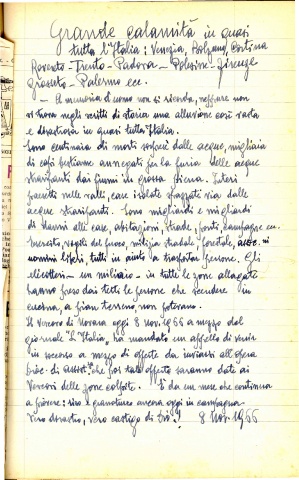 Grande calamità in quasi
tutta l'Italia: Venezia, Bolzano, Cortina
Rovereto - Trento - Padova - Polesine - Firenze
Grosseto - Palermo ecc.
- A memoria d'uomo non si ricorda, neppure non
si trova negli scritti di storia una alluvione così vasta
e disastrosa in quasi tutta Italia.
Sono centinaia di morti sorpresi dalle acque, migliaia
di capi bestiame annegati per la furia delle acque
straripanti dai fiumi in grossa piena. Interi
paesetti nelle valli, case isolate spazzati via dalle
acque straripanti. Sono migliardi e migliardi
di danni alle case, abitazioni, strade, ponti, campagne ecc.
vigili del fuoco, milizia stradale, forestale,
uomini liberi, tutti in aiuto a trasportar persone. Gli
elicotteri - un migliaio - in tutte le zone allagate
hanno preso dai tetti le persone che scendere in
cucina, a pian terreno, non potevano.
Il Vescovo di Novara oggi 8 nov. 1966 a mezzo del
giornale "L'Italia", ha mandato un appello di venir
in soccorso a mezzo di offerte da inviarsi all'opera
dioc. di assist. che poi tale offerte saranno date ai
Vescovi delle zone colpite. È da un mese che continua
a piovere: riso e granoturco ancora oggi in campagna
Vero disastro, vero castigo di Dio! 8 Nov. 1966